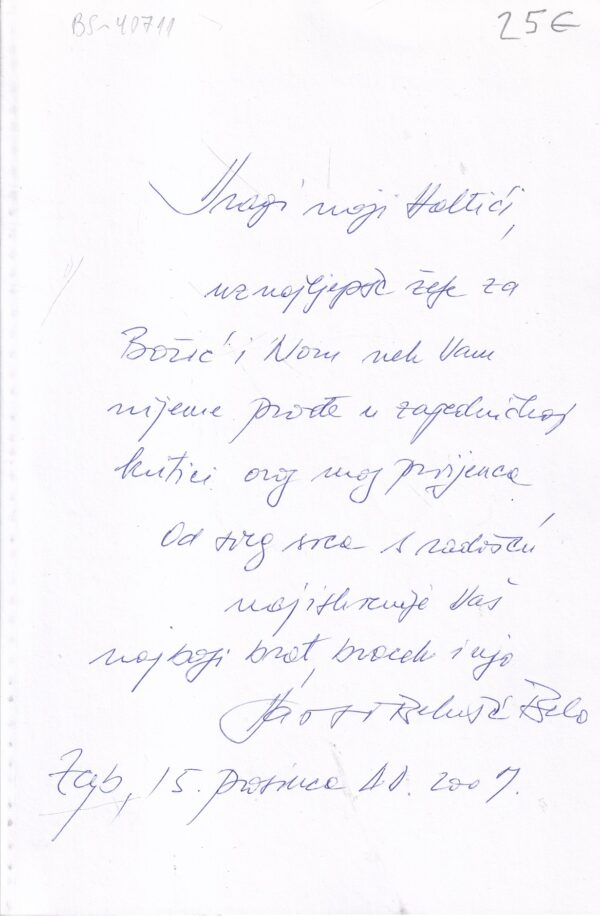 BS-40711
25€
Dragi moji
uz najljepše želje za
Božić i Novu nek Vam
vrijeme prođe u zajedničkoj
kućici ovoj moj
Od sveg srca s radošću
najiskrenije Vaš
brat, bracek i ujo
Zgb, 15. prosinca AD. 2007.